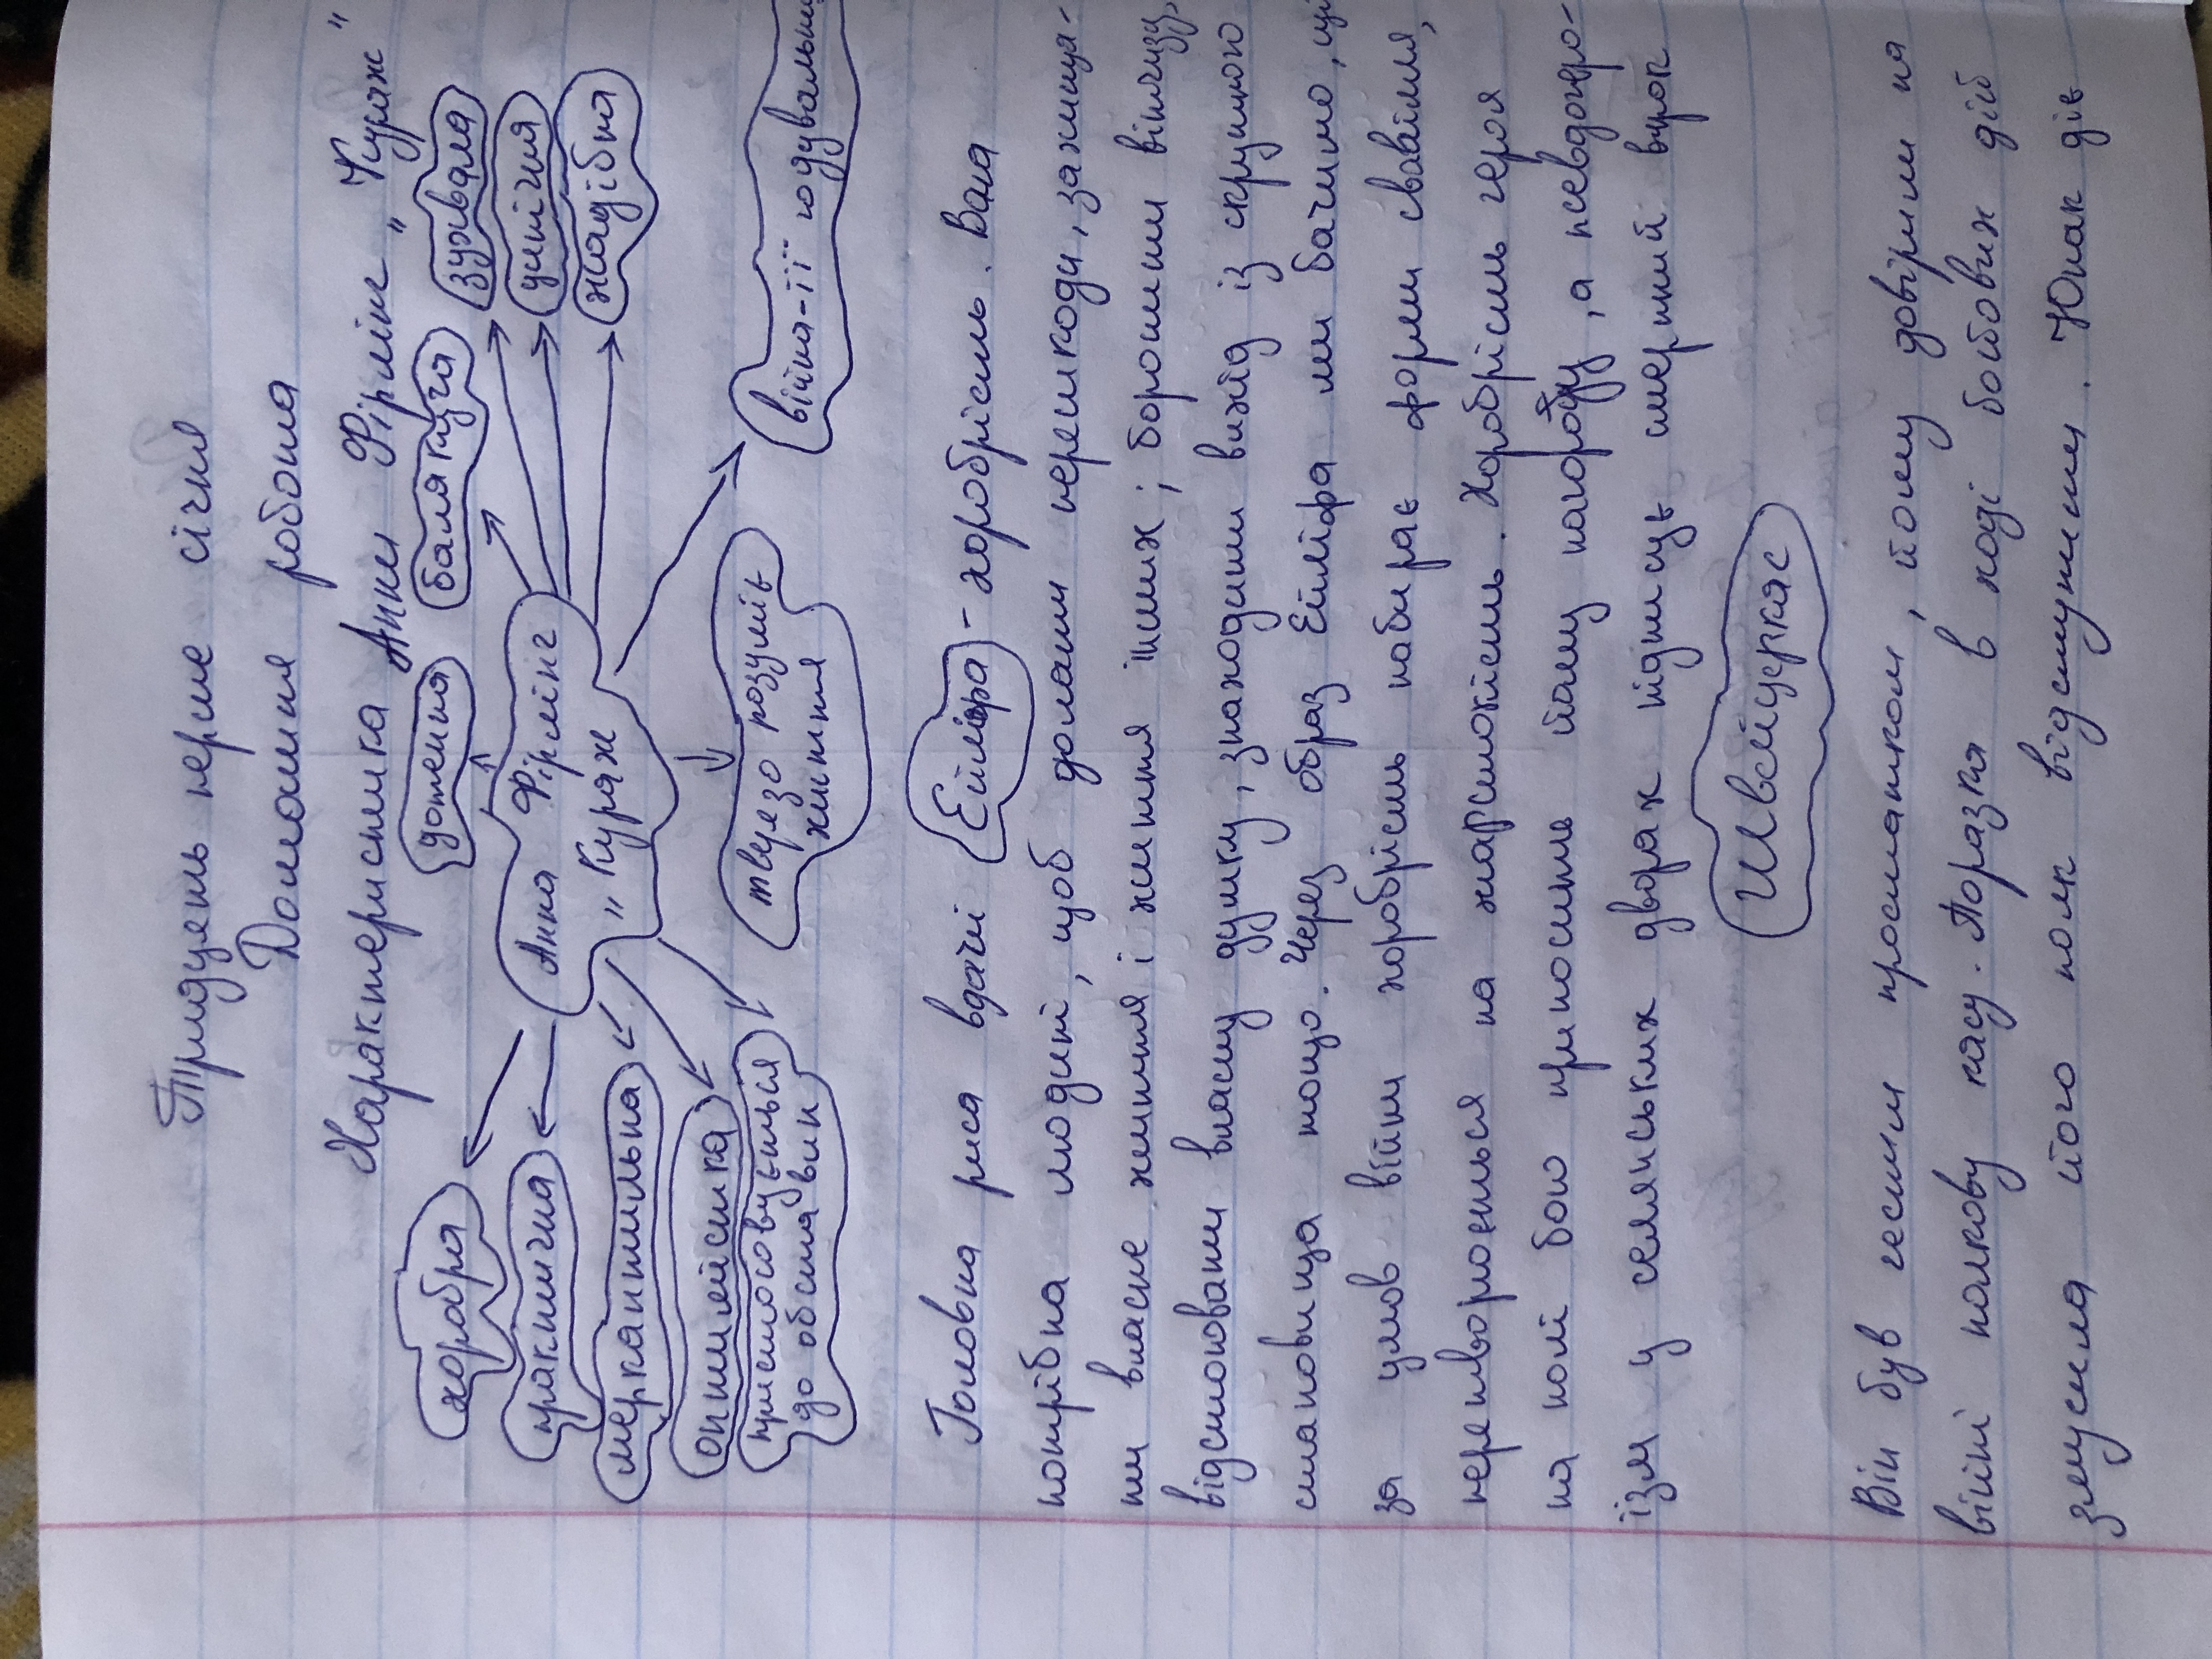 Тридцять перше січня
Домашня робота
Характеристика Анни Фірлінг „Кураж"
хоробра
дотепна
балакуча
зухвала
практична
Анна Фірлінг
„Кураж"
цинічна
меркантильна
жадібна
оптимістка
пристосовується
до обставин
тверезо розуміє
життя
війна-її годувальниця
Головна риса вдачі Ейліфа - хоробрість. Вона
потрібна людині, щоб долати перешкоди, захища-
ти власне життя і життя інших; боротити вітчизу,
відстоювати власну думку, знаходити вихід із скрутного
становища тощо. Через образ Ейліфа ми бачимо, що
за умов війни хоробрість набирає форми свавілля,
перетворюється на жорстокість. Хоробрість героя
на полі бою приносить йому нагороду, а псевдогеро-
їзм у селянських дворах підписує смертний вирок
Швейцеркас
Він був чесним простаком, йому довірили на
війні полкову касу. Поразка в ході бойових дій
змусила його полк відступити. Юнак діє